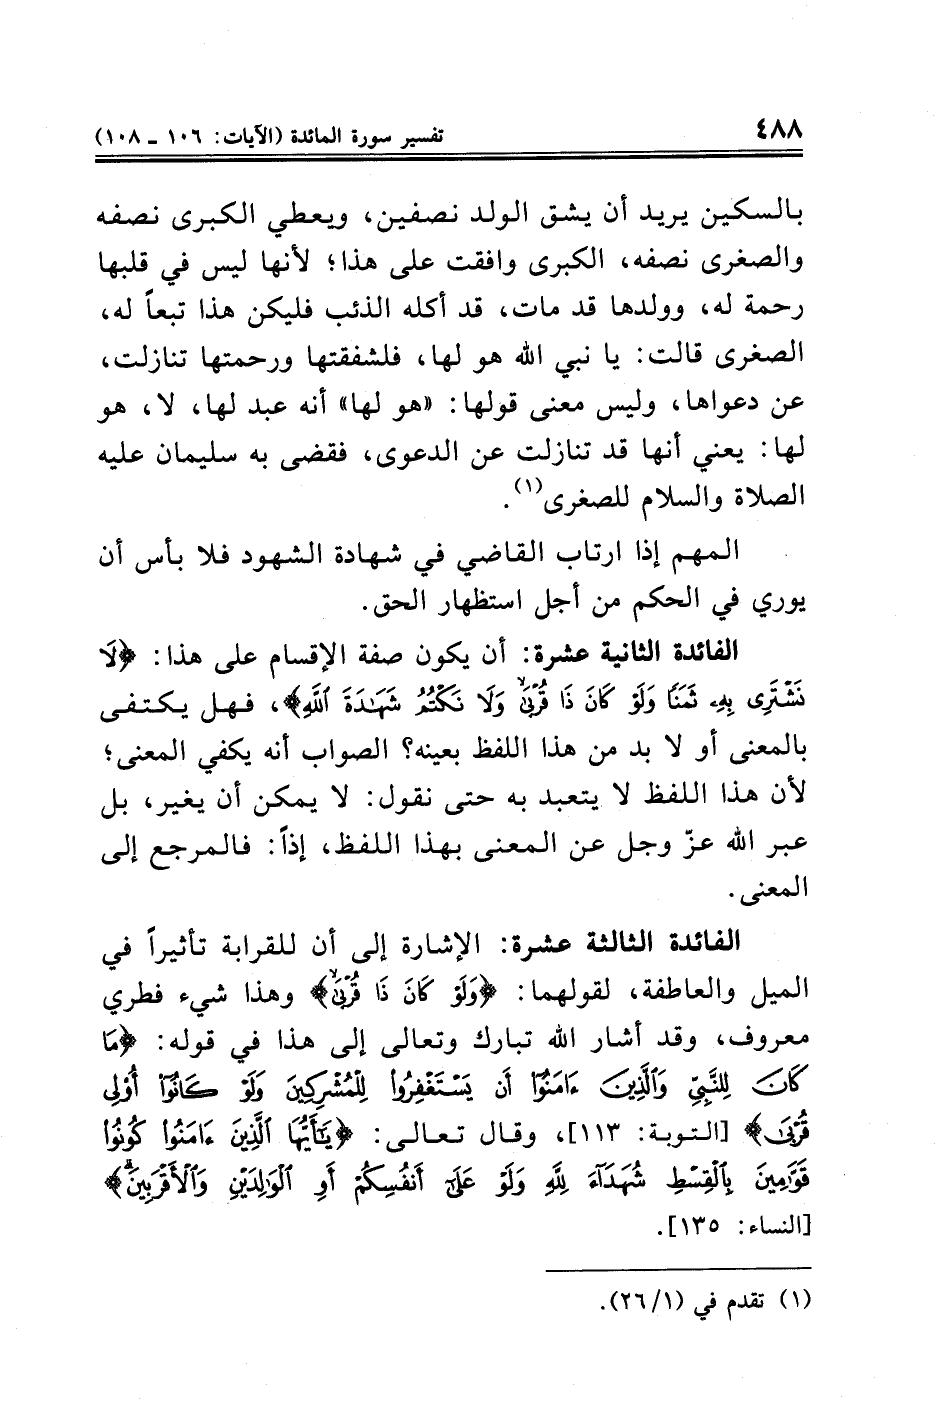 ٤٨٨
تفسير سورة المائدة (الآيات: ١٠٦ ـ ١٠٨)
بالسكين يريد أن يشق الولد نصفين، ويعطي الكبرى نصفه
والصغرى نصفه، الكبرى وافقت على هذا؛ لأنها ليس في قلبها
رحمة له، وولدها قد مات، قد أكله الذئب فليكن هذا تبعاً له،
الصغرى قالت: يا نبي الله هو لها، فلشفقتها ورحمتها تنازلت،
عن دعواها، وليس معنى قولها: «هو لها» أنه عبد لها، لا، هو
لها: يعني أنها قد تنازلت عن الدعوى، فقضى به سليمان عليه
الصلاة والسلام للصغرى(١).
المهم إذا ارتاب القاضي في شهادة الشهود فلا بأس أن
يوري في الحكم من أجل استظهار الحق.
الفائدة الثانية عشرة: أن يكون صفة الإقسام على هذا: ﴿لَا
نَشْتَرِى بِهِۦ ثَمَنًا وَلَوْ كَانَ ذَا قُرْبَىٰۙ وَلَا نَكْتُمُ شَهَـٰدَةَ ٱللَّهِ﴾، فهل يكتفى
بالمعنى أو لا بد من هذا اللفظ بعينه؟ الصواب أنه يكفي المعنى؛
لأن هذا اللفظ لا يتعبد به حتى نقول: لا يمكن أن يغير، بل
عبر الله عزّ وجل عن المعنى بهذا اللفظ، إذاً: فالمرجع إلى
المعنى.
الفائدة الثالثة عشرة: الإشارة إلى أن للقرابة تأثيراً في
الميل والعاطفة، لقولهما: ﴿وَلَوْ كَانَ ذَا قُرْبَىٰۙ﴾ وهذا شيء فطري
معروف، وقد أشار الله تبارك وتعالى إلى هذا في قوله: ﴿مَا
كَانَ لِلنَّبِيِّ وَٱلَّذِينَ ءَامَنُوٓا۟ أَن يَسْتَغْفِرُوا۟ لِلْمُشْرِكِينَ وَلَوْ كَانُوٓا۟ أُو۟لِى
قُرْبَىٰ﴾ [التوبة: ١١٣]، وقال تعالى: ﴿يَـٰٓأَيُّهَا ٱلَّذِينَ ءَامَنُوا۟ كُونُوا۟
قَوَّٰمِينَ بِٱلْقِسْطِ شُهَدَآءَ لِلَّهِ وَلَوْ عَلَىٰٓ أَنفُسِكُمْ أَوِ ٱلْوَٰلِدَيْنِ وَٱلْأَقْرَبِينَۚ﴾
[النساء: ١٣٥].
(١) تقدم في (٢٦/١).